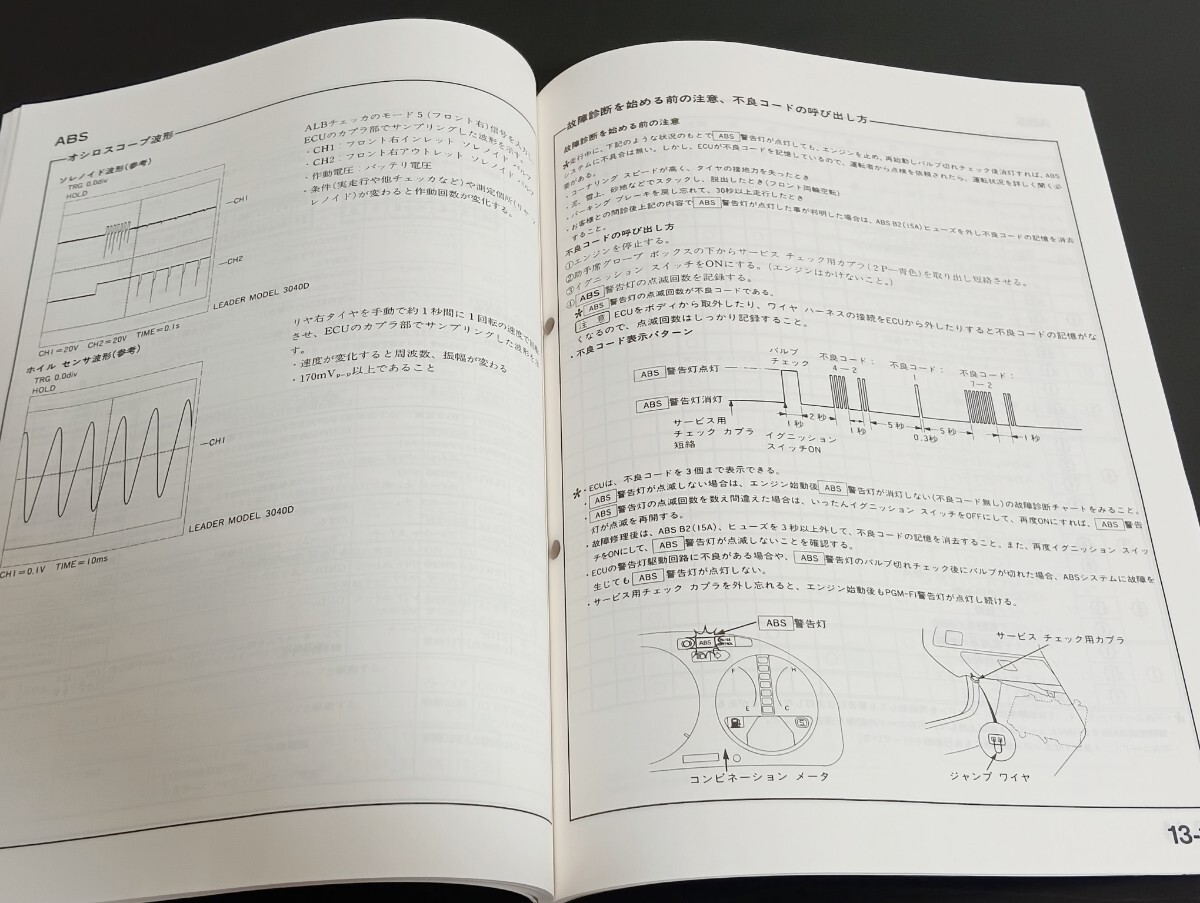 ABS
オシロスコープ波形
ソレノイド波形(参考)
TRG 0.0div
HOLD
CH1
CH2
LEADER MODEL 3040D
CH1=20V CH2=20V TIME=0.1s
ALBチェッカのモード5(フロント右)信号を入力し
ECUのカプラ部でサンプリングした波形を示す。
・CH1:フロント右インレット ソレノイド バルブ
・CH2:フロント右アウトレット ソレノイド バルブ
・作動電圧:バッテリ電圧
・条件(実走行や他チェッカなど)や測定個所(リヤソ
レノイド)が変わると作動回数が変化する。
ホイル センサ波形(参考)
TRG 0.0div
HOLD
CH1
LEADER MODEL 3040D
CH1=0.1V TIME=10ms
リヤ右タイヤを手動で約1秒間に1回転の速度で回転
させ、ECUのカプラ部でサンプリングした波形を示
す。
・速度が変化すると周波数、振幅が変わる
・170mVp-p以上であること
故障診断を始める前の注意、不良コードの呼び出し方
故障診断を始める前の注意
*走行中に、下記のような状況のもとでABS警告灯が点灯しても、エンジンを止め、再始動しバルブ切れチェック後消灯すれば、ABS
システムに不具合は無い。しかし、ECUが不良コードを記憶しているので、運転者から点検を依頼されたら、運転状況を詳しく聞く必
要がある。
・コーナリング スピードが高く、タイヤの接地力を失ったとき
・氷、雪上、砂地などでスタックし、脱出したとき(フロント両輪空転)
・パーキング ブレーキを戻し忘れて、30秒以上走行したとき
・お客様との問診後上記の内容でABS警告灯が点灯した事が判明した場合は、ABS B2(15A)ヒューズを外し不良コードの記憶を消去
すること。
不良コードの呼び出し方
①エンジンを停止する。
②助手席グローブ ボックスの下からサービス チェック用カプラ(2P—青色)を取り出し短絡させる。
③イグニッション スイッチをONにする。(エンジンはかけないこと。)
④ABS警告灯の点滅回数を記録する。
*ABS警告灯の点滅回数が不良コードである。
注意 ECUをボディから取外したり、ワイヤ ハーネスの接続をECUから外したりすると不良コードの記憶がな
くなるので、点滅回数はしっかり記録すること。
・不良コード表示パターン
バルブ
チェック
不良コード:
4—2
不良コード:
1
不良コード:
7—2
ABS警告灯点灯
ABS警告灯消灯
サービス用
チェック カプラ
短絡
1秒
2秒
1秒
5秒
0.3秒
5秒
1秒
イグニッション
スイッチON
*・ECUは、不良コードを3個まで表示できる。
・ABS警告灯が点滅しない場合は、エンジン始動後ABS警告灯が消灯しない(不良コード無し)の故障診断チャートをみること。
・ABS警告灯の点滅回数を数え間違えた場合は、いったんイグニッション スイッチをOFFにして、再度ONにすれば、ABS警告
灯が点滅を再開する。
・故障修理後は、ABS B2(15A)、ヒューズを3秒以上外して、不良コードの記憶を消去すること。また、再度イグニッション スイッ
チをONにして、ABS警告灯が点滅しないことを確認する。
・ECUの警告灯駆動回路に不良がある場合や、ABS警告灯のバルブ切れチェック後にバルブが切れた場合、ABSシステムに故障を
生じてもABS警告灯が点灯しない。
・サービス用チェック カプラを外し忘れると、エンジン始動後もPGM-FI警告灯が点灯し続ける。
ABS警告灯
ABS
F
H
E
C
コンビネーション メータ
サービス チェック用カプラ
ジャンプ ワイヤ
13-